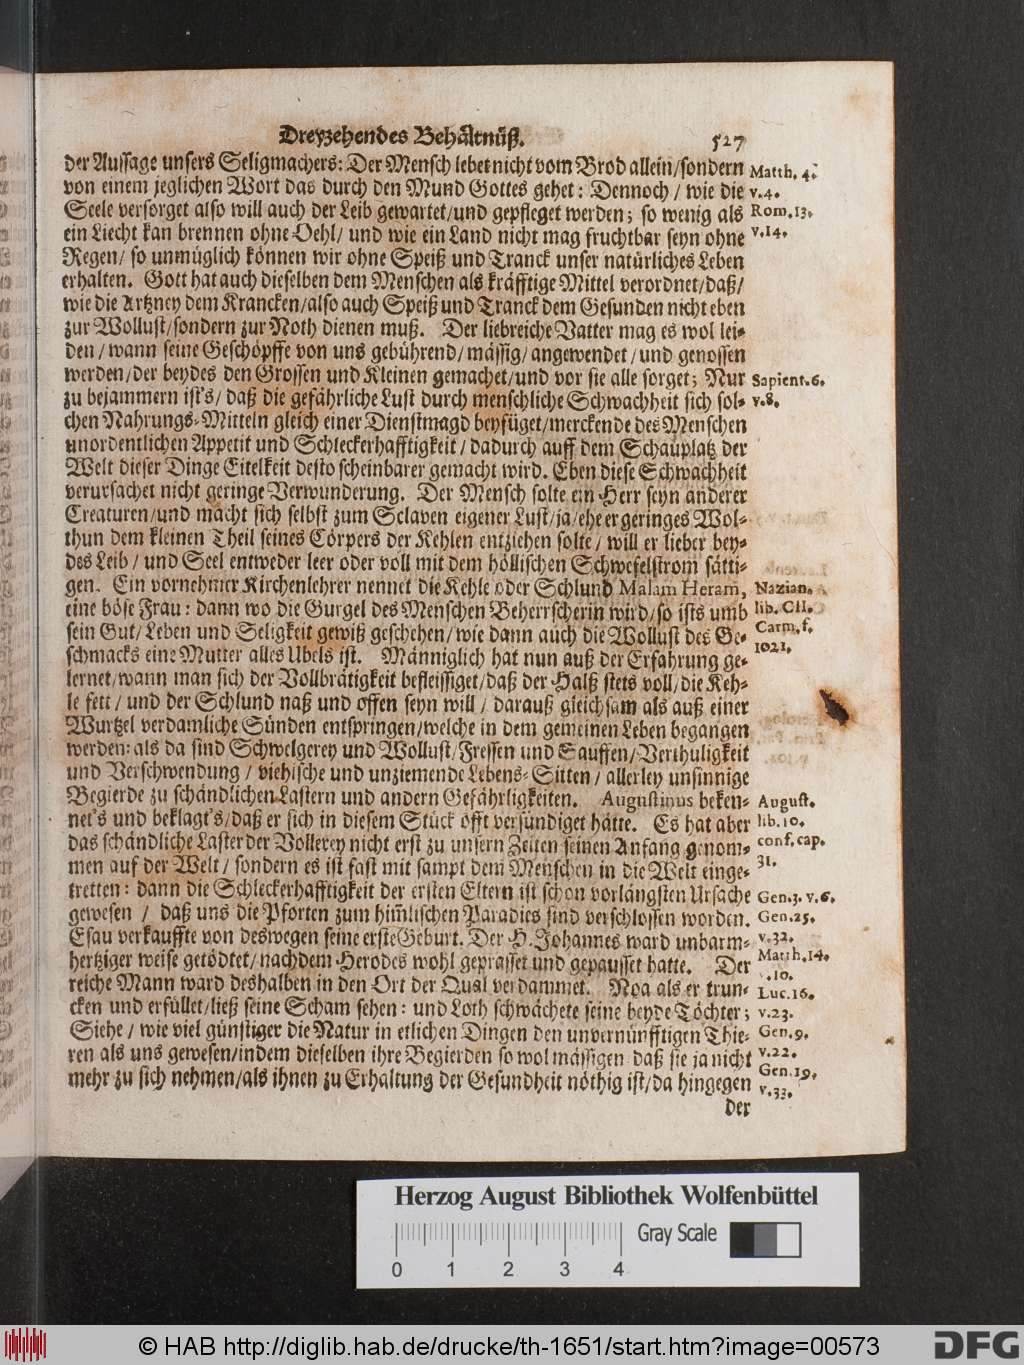 Dreyzehendes Behältnüß. 527
der Aussage unsers Seligmachers: Der Mensch lebet nicht vom Brod allein/sondern
von einem jeglichen Wort das durch den Mund Gottes gehet: Dennoch / wie die
Seele versorget also will auch der Leib gewartet/und gepfleget werden; so wenig als
ein Liecht kan brennen ohne Oehl/ und wie ein Land nicht mag fruchtbar seyn ohne
Regen/ so unmüglich können wir ohne Speiß und Tranck unser natürliches Leben
erhalten. Gott hat auch dieselben dem Menschen als kräfftige Mittel verordnet/daß/
wie die Artzney dem Krancken/also auch Speiß und Tranck dem Gesunden nicht eben
zur Wollust/sondern zur Noth dienen muß. Der liebreiche Vatter mag es wol lei-
den/wann seine Geschöpffe von uns gebührend/mässig/angewendet/und genossen
werden/der beydes den Grossen und Kleinen gemachet/und vor sie alle sorget; Nur
zu bejammern ist's/ daß die gefährliche Lust durch menschliche Schwachheit sich sol-
chen Nahrungs-Mitteln gleich einer Dienstmagd beyfüget/merckende des Menschen
unordentlichen Appetit und Schleckerhafftigkeit / dadurch auff dem Schauplatz der
Welt dieser Dinge Eitelkeit desto scheinbarer gemacht wird. Eben diese Schwachheit
verursachet nicht geringe Verwunderung. Der Mensch solte ein Herr seyn anderer
Creaturen/und macht sich selbst zum Sclaven eigener Lust/ja/ehe er geringes Wol-
thun dem kleinen Theil seines Cörpers der Kehlen entziehen solte/ will er lieber bey-
des Leib / und Seel entweder leer oder voll mit dem höllischen Schwefelstrom sätti-
gen. Ein vornehmer Kirchenlehrer nennet die Kehle oder Schlund Malam Heram,
eine böse Frau: dann wo die Gurgel des Menschen Beherrscherin wird/so ists umb
sein Gut/ Leben und Seligkeit gewiß geschehen/wie dann auch die Wollust des Ge-
schmacks eine Mutter alles Ubels ist. Männiglich hat nun auß der Erfahrung ge-
lernet/wann man sich der Vollbrätigkeit befleissiget/daß der Halß stets voll/die Keh-
le fett / und der Schlund naß und offen seyn will / darauß gleichsam als auß einer
Wurtzel verdamliche Sünden entspringen/welche in dem gemeinen Leben begangen
werden: als da sind Schwelgerey und Wollust/Fressen und Sauffen/Verthuligkeit
und Verschwendung / viehische und unziemende Lebens-Sitten / allerley unsinnige
Begierde zu schändlichen Lastern und andern Gefährligkeiten. Augustinus beken-
net's und beklagt's/daß er sich in diesem Stück offt versündiget hätte. Es hat aber
das schändliche Laster der Vollerey nicht erst zu unsern Zeiten seinen Anfang genom-
men auf der Welt / sondern es ist fast mit sampt dem Menschen in die Welt einge-
tretten: dann die Schleckerhafftigkeit der ersten Eltern ist schon vorlängsten Ursache
gewesen / daß uns die Pforten zum him̃lischen Paradies sind verschlossen worden.
Esau verkauffte von deswegen seine erste Geburt. Der H. Johannes ward unbarm-
hertziger weise getödtet/nachdem Herodes wohl geprasset und gepausset hatte. Der
reiche Mann ward deshalben in den Ort der Qual verdammet. Noa als er trun-
cken und erfüllet/ließ seine Scham sehen: und Loth schwächete seine beyde Töchter;
Siehe / wie viel günstiger die Natur in etlichen Dingen den unvernünfftigen Thie-
ren als uns gewesen/indem dieselben ihre Begierden so wol mässigen daß sie ja nicht
mehr zu sich nehmen/als ihnen zu Erhaltung der Gesundheit nöthig ist/da hingegen
der
Matth. 4.
v. 4.
Rom. 13.
v. 14.
Sapient. 6.
v. 8.
Nazian.
lib. CII.
Carm. f.
1021.
August.
lib. 10.
conf. cap.
31.
Gen. 3. v. 6.
Gen. 25.
v. 32.
Matth. 14.
v. 10.
Luc. 16.
v. 23.
Gen. 9.
v. 22.
Gen. 19.
v. 33.
Herzog August Bibliothek Wolfenbüttel
Gray Scale
0 1 2 3 4
© HAB http://diglib.hab.de/drucke/th-1651/start.htm?image=00573
DFG